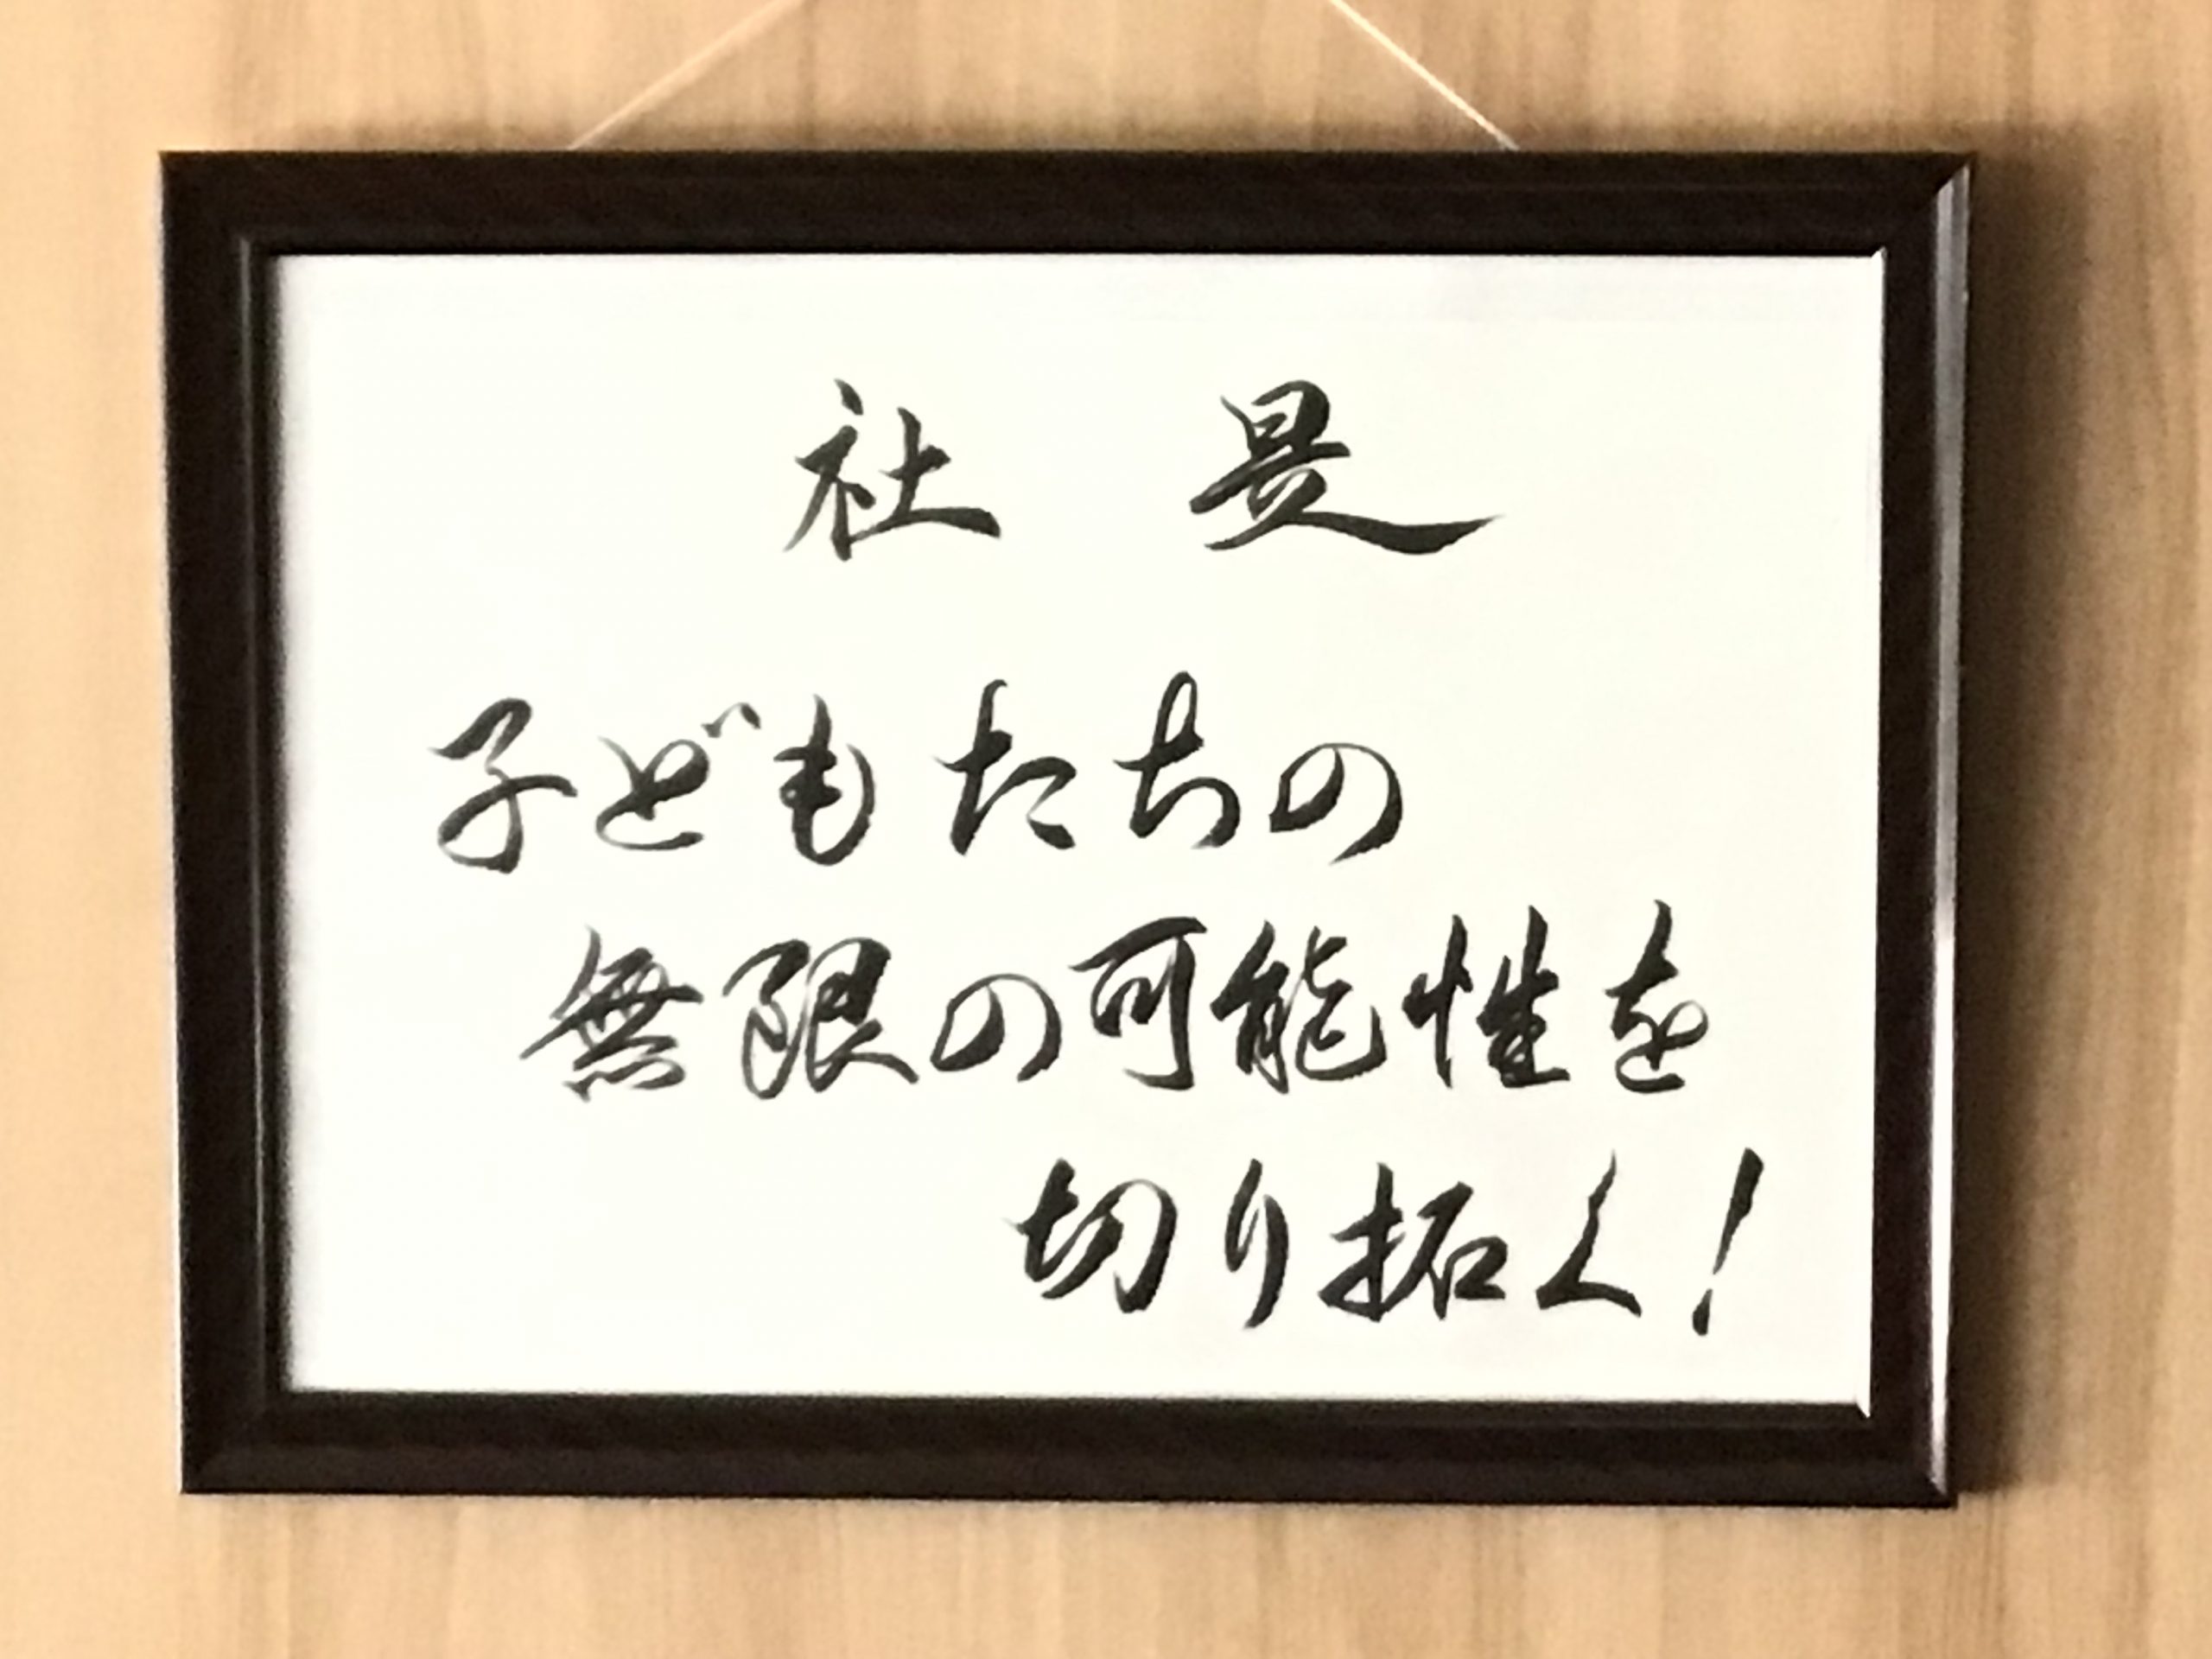 社是
子どもたちの
無限の可能性を
切り拓く!